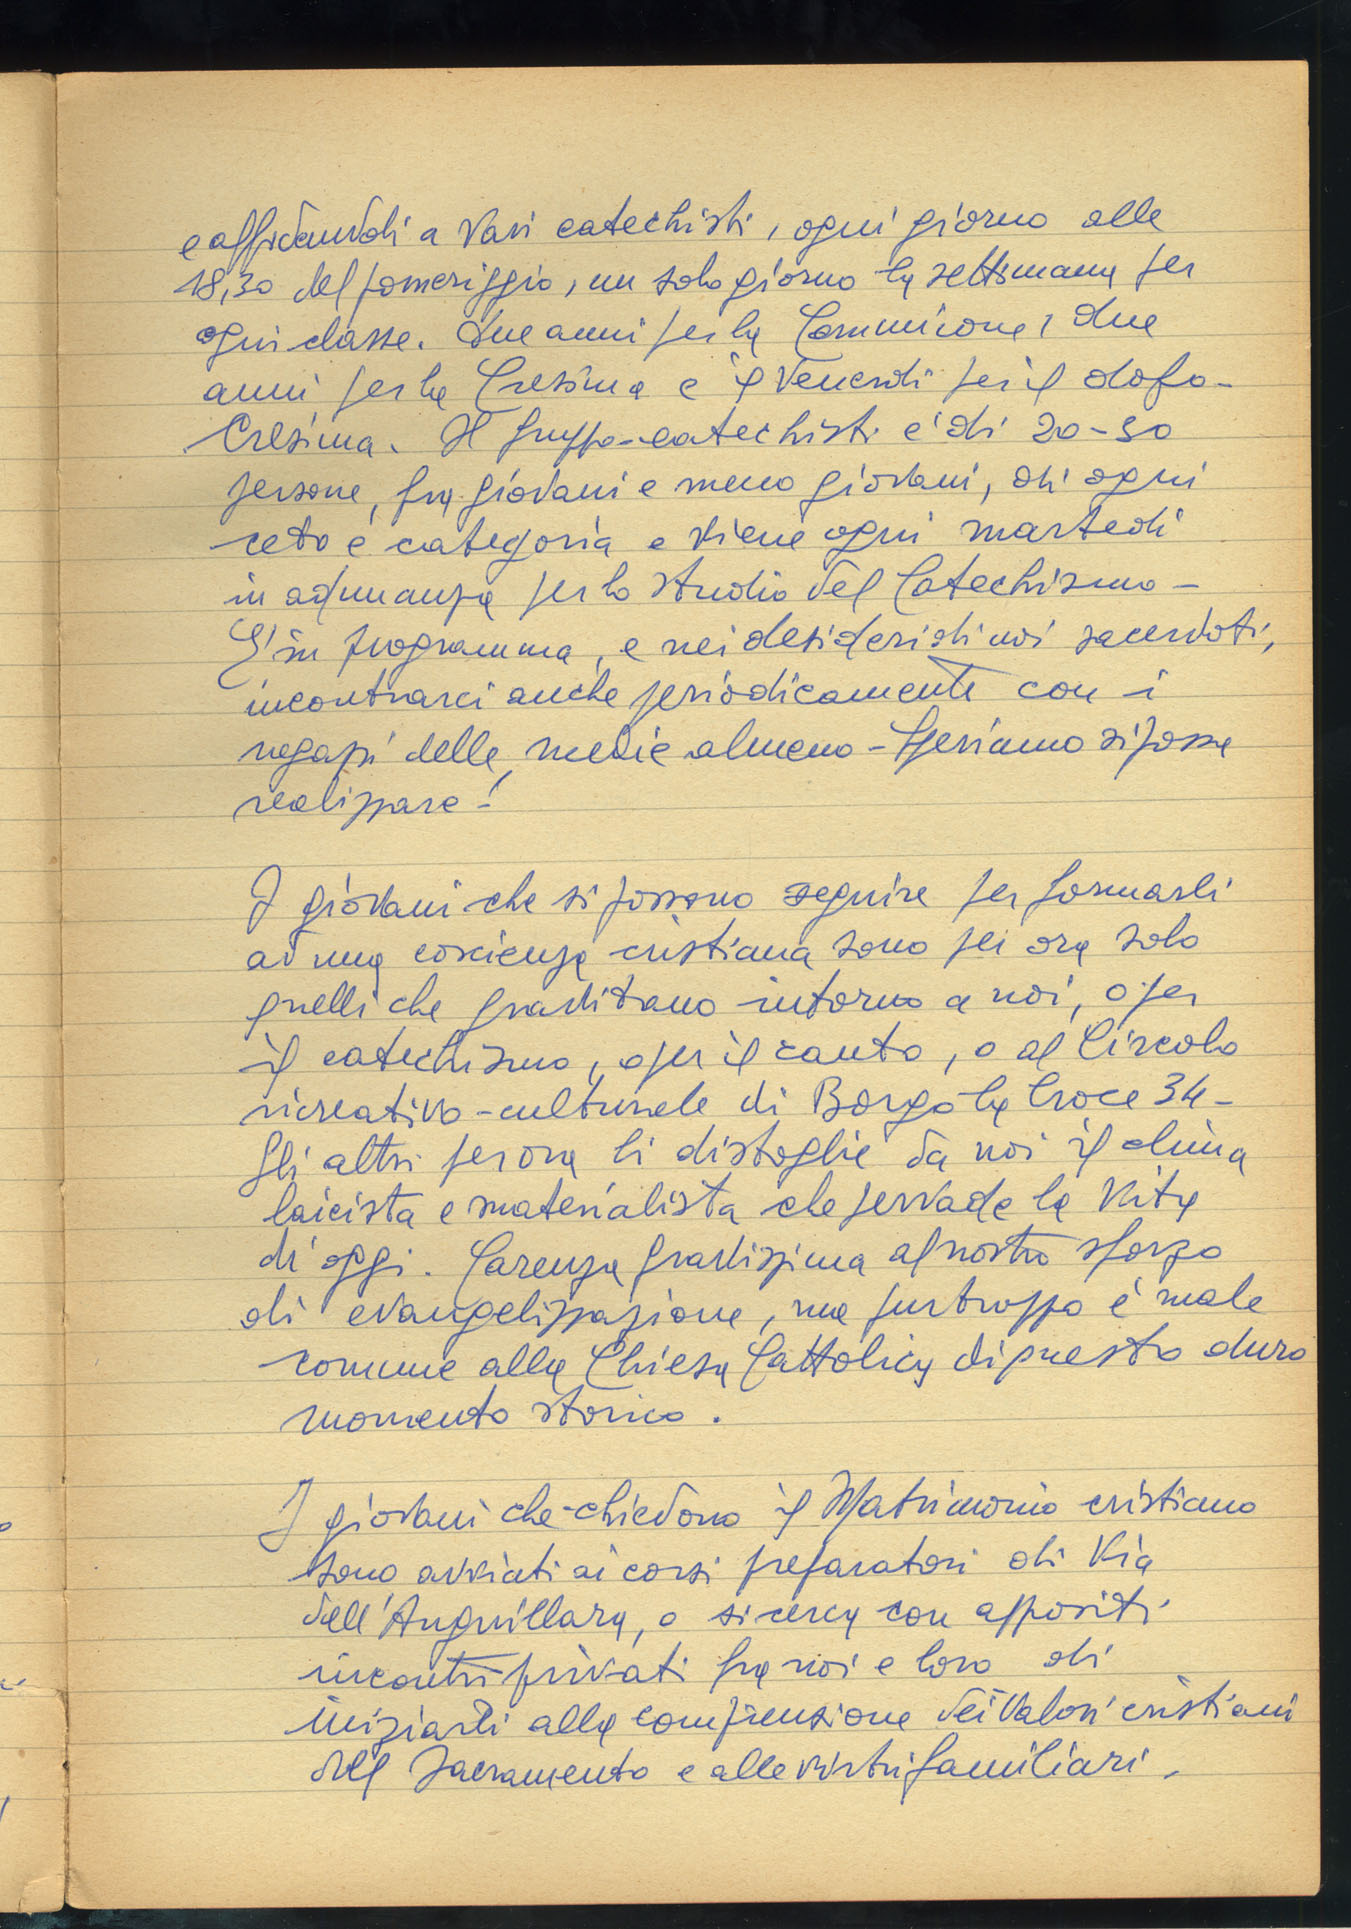 e affidandoli a vari catechisti, ogni giorno alle
18,30 del pomeriggio, un solo giorno la settimana per
ogni classe. Due anni per la Comunione, due
anni per la Cresima e il Venerdì per il dopo-
Cresima. Il gruppo-catechisti è di 20-30
persone, fra giovani e meno giovani, di ogni
ceto e categoria e viene ogni martedì
in adunanza per lo studio del Catechismo -
E' in programma, e nei desideri di noi sacerdoti,
incontrarci anche periodicamente con i
ragazzi delle medie almeno - Speriamo si possa
realizzare!
I giovani che si possono seguire per formarli
ad una coscienza cristiana sono per ora solo
quelli che gravitano intorno a noi, o per
il catechismo, o per il canto, o al Circolo
ricreativo-culturale di Borgo la Croce 34 -
Gli altri per ora li distoglie da noi il clima
laicista e materialista che pervade la vita
di oggi. Carenza gravissima al nostro sforzo
di evangelizzazione, ma purtroppo è male
comune alla Chiesa Cattolica di questo duro
momento storico.
I giovani che chiedono il Matrimonio cristiano
sono avviati ai corsi preparatori di Via
dell'Anguillara, o si cerca con appositi
incontri privati fra noi e loro di
iniziarli alla comprensione dei valori cristiani
del Sacramento e alle virtù familiari.